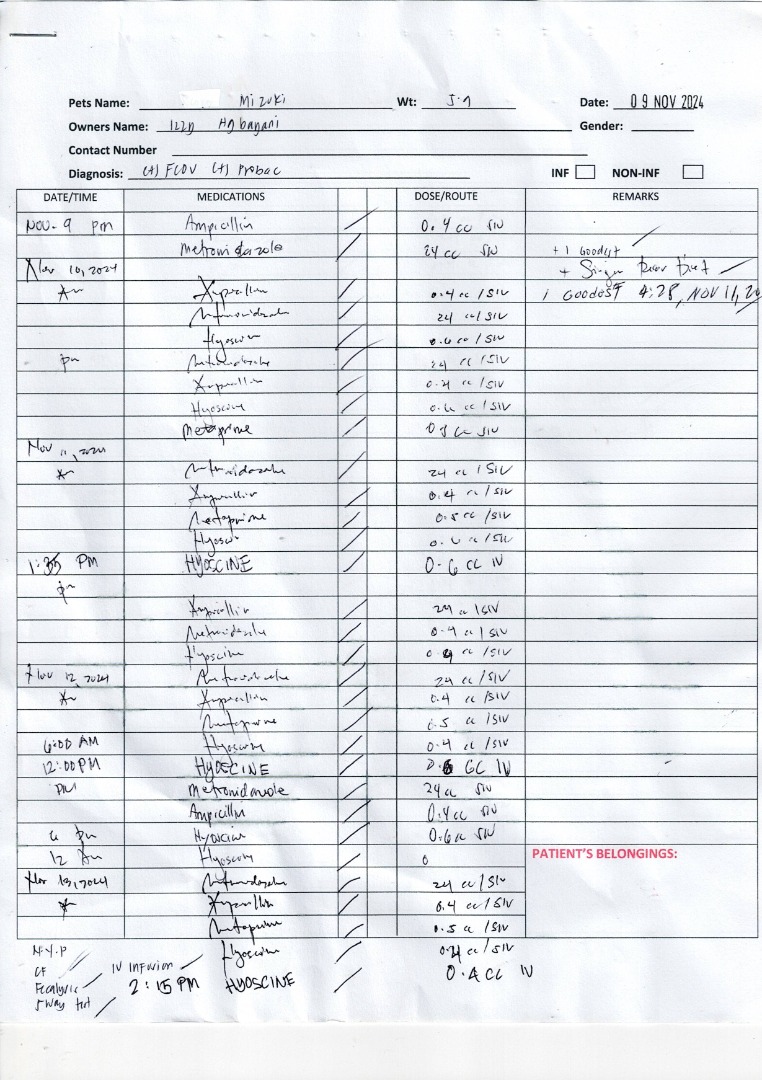 Pets Name: Mizuki Wt: 5.9 Date: 09 NOV 2024
Owners Name: Izzy Gender:
Contact Number
Diagnosis: (+) FCOV (+) Probac INF NON-INF
DATE/TIME MEDICATIONS DOSE/ROUTE REMARKS
Nov. 9 pm Ampicillin 0.4 cc SIV
Metronidazole 24 cc SIV + 1 Goodest
Nov 10, 2024 +
Am Ampicillin 0.4 cc/SIV 1 GOODEST 4:28, NOV 11, 20
Metronidazole 24 cc/SIV
Hyoscine 0.6 cc/SIV
pm Metronidazole 24 cc/SIV
Ampicillin 0.4 cc/SIV
Hyoscine 0.6 cc/SIV
Metoprime 0.5 cc SIV
Nov 11, 2024
Am Metronidazole 24 cc/SIV
Ampicillin 0.4 cc/SIV
Metoprime 0.5 cc/SIV
Hyoscine 0.6 cc/SIV
1:35 PM HYOSCINE 0.6 CC IV
pm
Ampicillin 24 cc/SIV
Metronidazole 0.4 cc/SIV
Hyoscine 0.4 cc/SIV
Nov 12, 2024 Metronidazole 24 cc/SIV
Am Ampicillin 0.4 cc/SIV
Metoprime 0.5 cc/SIV
6:00 AM Hyoscine 0.4 cc/SIV
12:00 PM HYOSCINE CC IV
PM Metronidazole 24 cc SIV
Ampicillin 0.4 cc SIV
6 pm Hyoscine 0.6 cc SIV
12 Am Hyoscine 0 PATIENT'S BELONGINGS:
Nov 13, 2024 Metronidazole 24 cc/SIV
Am Ampicillin 0.4 cc/SIV
Metoprime 0.5 cc/SIV
Hyoscine 0.4 cc/SIV
CF IV Infusion
2:15 PM HYOSCINE 0.4 CC IV
5 way test